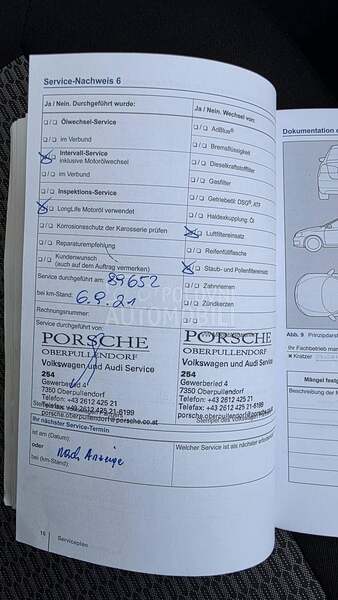 Service-Nachweis 6
Ja / Nein. Durchgeführt wurde:
❑/❑ Ölwechsel-Service
❑/❑ im Verbund
❑/❑ Intervall-Service
inklusive Motorölwechsel
❑/❑ im Verbund
❑/❑ Inspektions-Service
❑/❑ LongLife Motoröl verwendet
❑/❑ Korrosionsschutz der Karosserie prüfen
❑/❑ Reparaturempfehlung
❑/❑ Kundenwunsch
(auch auf dem Auftrag vermerken)
Service durchgeführt am: 89652
bei km-Stand: 6.9.21
Rechnungsnummer:
Service durchgeführt von:
PORSCHE
OBERPULLENDORF
Volkswagen und Audi Service
254
Gewerbering 4
7350 Oberpullendorf
Telefon: +43 2612 425 21
Telefax: +43 2612 425 21-6199
porsche.oberpullendorf@porsche.co.at
Ihr nächster Service-Termin
ist am (Datum):
oder
bei (km-Stand):
nach Anzeige
16 Serviceplan
Ja / Nein. Wechsel von:
❑/❑ AdBlue®
❑/❑ Bremsflüssigkeit
❑/❑ Dieselkraftstofffilter
❑/❑ Gasfilter
❑/❑ Getriebeöl: DSG®,
❑/❑ Haldexkupplung: Öl
❑/❑ Luftfiltereinsatz
❑/❑ Reifenfüllflasche
❑/❑ Staub- und Pollenfiltereinsatz
❑/❑ Zahnriemen
❑/❑ Zündkerzen
AUTOMOBILI
PORSCHE
OBERPULLENDORF
Volkswagen und Audi Service
254
Gewerbering 4
7350 Oberpullendorf
Telefon: +43 2612 425 21
Telefax: +43 2612 425 21-6199
porsche.oberpullendorf@porsche.co.at
Welcher Service ist als nächster erforderlich?
Dokumentation
Abb. 9 Prinzipdarst
Ihr Fachbetrieb mar
× Kratzer
Mängel festg
Beschreibung der